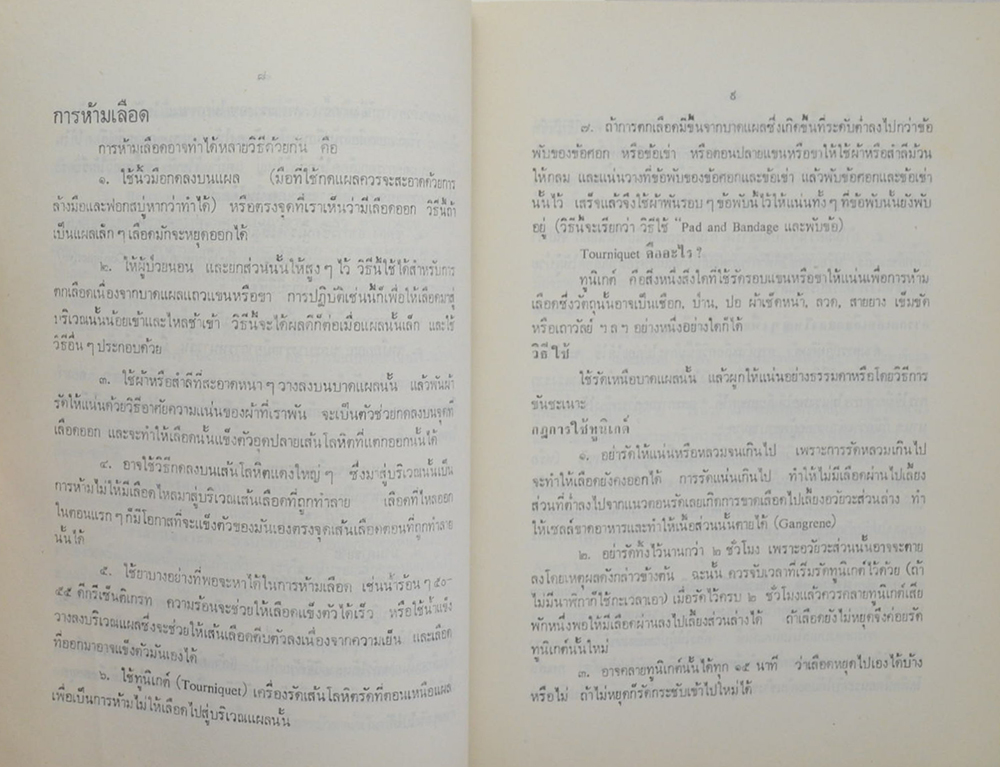 ๘
การห้ามเลือด
การห้ามเลือดอาจทำได้หลายวิธีด้วยกัน คือ
๑. ใช้นิ้วมือกดลงบนแผล (มือที่ใช้กดแผลควรจะสะอาดด้วยการ
ล้างมือและฟอกสบู่หากว่าทำได้) หรือตรงจุดที่เราเห็นว่ามีเลือดออก วิธีนี้ถ้า
เป็นแผลเล็ก ๆ เลือดมักจะหยุดออกได้
๒. ให้ผู้ป่วยนอน และยกส่วนนั้นให้สูง ๆ ไว้ วิธีนี้ใช้ได้สำหรับการ
ตกเลือดเนื่องจากบาดแผลแถวแขนหรือขา การปฏิบัติเช่นนี้ก็เพื่อให้เลือดมาสู่
บริเวณนั้นน้อยเข้าและไหลช้าเข้า วิธีนี้จะได้ผลดีก็ต่อเมื่อแผลนั้นเล็ก และใช้
วิธีอื่น ๆ ประกอบด้วย
๓. ใช้ผ้าหรือสำลีที่สะอาดหนา ๆ วางลงบนบาดแผลนั้น แล้วพันผ้า
รัดให้แน่นด้วยวิธีอาศัยความแน่นของผ้าที่เราพัน จะเป็นตัวช่วยกดลงบนจุดที่
เลือดออก และจะทำให้เลือดนั้นแข็งตัวอุดปลายเส้นโลหิตที่แตกออกนั้นได้
๔. อาจใช้วิธีกดลงบนเส้นโลหิตแดงใหญ่ ๆ ซึ่งมาสู่บริเวณนั้นเป็น
การห้ามไม่ให้มีเลือดไหลมาสู่บริเวณเส้นเลือดที่ถูกทำลาย เลือดที่ไหลออก
ในตอนแรก ๆ ก็มีโอกาสที่จะแข็งตัวของมันเองตรงจุดเส้นเลือดตอนที่ถูกทำลาย
นั้นได้
๕. ใช้ยาบางอย่างที่พอจะหาได้ในการห้ามเลือด เช่นน้ำร้อน ๆ ๕๐-
๕๕ ดีกรีเซ็นติเกรท ความร้อนจะช่วยให้เลือดแข็งตัวได้เร็ว หรือใช้น้ำแข็ง
วางลงบริเวณแผลซึ่งจะช่วยให้เส้นเลือดตีบตัวลงเนื่องจากความเย็น และเลือด
ที่ออกมาอาจแข็งตัวมันเองได้
๖. ใช้ทูนิเกต์ (Tourniquet) เครื่องรัดเส้นโลหิตรัดที่ตอนเหนือแผล
เพื่อเป็นการห้ามไม่ให้เลือดไปสู่บริเวณแผลนั้น
๙
๗. ถ้าการตกเลือดมีขึ้นจากบาดแผลซึ่งเกิดขึ้นที่ระดับต่ำลงไปกว่าข้อ
พับของข้อศอก หรือข้อเข่า หรือตอนปลายแขนหรือขาให้ใช้ผ้าหรือสำลีม้วน
ให้กลม และแน่นวางที่ข้อพับของข้อศอกและข้อเข่า แล้วพับข้อศอกและข้อเข่า
นั้นไว้ เสร็จแล้วจึงใช้ผ้าพันรอบ ๆ ข้อพับนี้ไว้ให้แน่นทั้ง ๆ ที่ข้อพับนั้นยังพับ
อยู่ (วิธีนี้จะเรียกว่า วิธีใช้ "Pad and Bandage และพับข้อ)
Tourniquet คืออะไร ?
ทูนิเกต์ คือสิ่งหนึ่งสิ่งใดที่ใช้รัดรอบแขนหรือขาให้แน่นเพื่อการห้าม
เลือดซึ่งวัตถุนั้นอาจเป็นเชือก, ป่าน, ปอ ผ้าเช็ดหน้า, ลวด, สายยาง เข็มขัด
หรือเถาวัลย์ ฯลฯ อย่างหนึ่งอย่างใดก็ได้
วิธีใช้
ใช้รัดเหนือบาดแผลนั้น แล้วผูกให้แน่นอย่างธรรมดาหรือโดยวิธีการ
ขันชะเนาะ
กฎการใช้ทูนิเกต์
๑. อย่ารัดให้แน่นหรือหลวมจนเกินไป เพราะการรัดหลวมเกินไป
จะทำให้เลือดยังคงออกได้ การรัดแน่นเกินไป ทำให้ไม่มีเลือดผ่านไปเลี้ยง
ส่วนที่ต่ำลงไปจากแนวตอนรัดเลยเกิดการขาดเลือดไปเลี้ยงอวัยวะส่วนล่าง ทำ
ให้เซลล์ขาดอาหารและทำให้เนื้อส่วนนั้นตายได้ (Gangrene)
๒. อย่ารัดทิ้งไว้นานกว่า ๒ ชั่วโมง เพราะอวัยวะส่วนนั้นอาจจะตาย
ลงโดยเหตุผลดังกล่าวข้างต้น ฉะนั้น ควรจับเวลาที่เริ่มรัดทูนิเกต์ไว้ด้วย (ถ้า
ไม่มีนาฬิกาก็ใช้กะเวลาเอา) เมื่อรัดไว้ครบ ๒ ชั่วโมงแล้วควรคลายทูนิเกต์เสีย
พักหนึ่งพอให้มีเลือดผ่านลงไปเลี้ยงส่วนล่างได้ ถ้าเลือดยังไม่หยุดจึงค่อยรัด
ทูนิเกต์นั้นใหม่
๓. อาจคลายทูนิเกต์นั้นได้ทุก ๑๕ นาที ว่าเลือดหยุดไปเองได้บ้าง
หรือไม่ ถ้าไม่หยุดก็รัดกระชับเข้าไปใหม่ได้